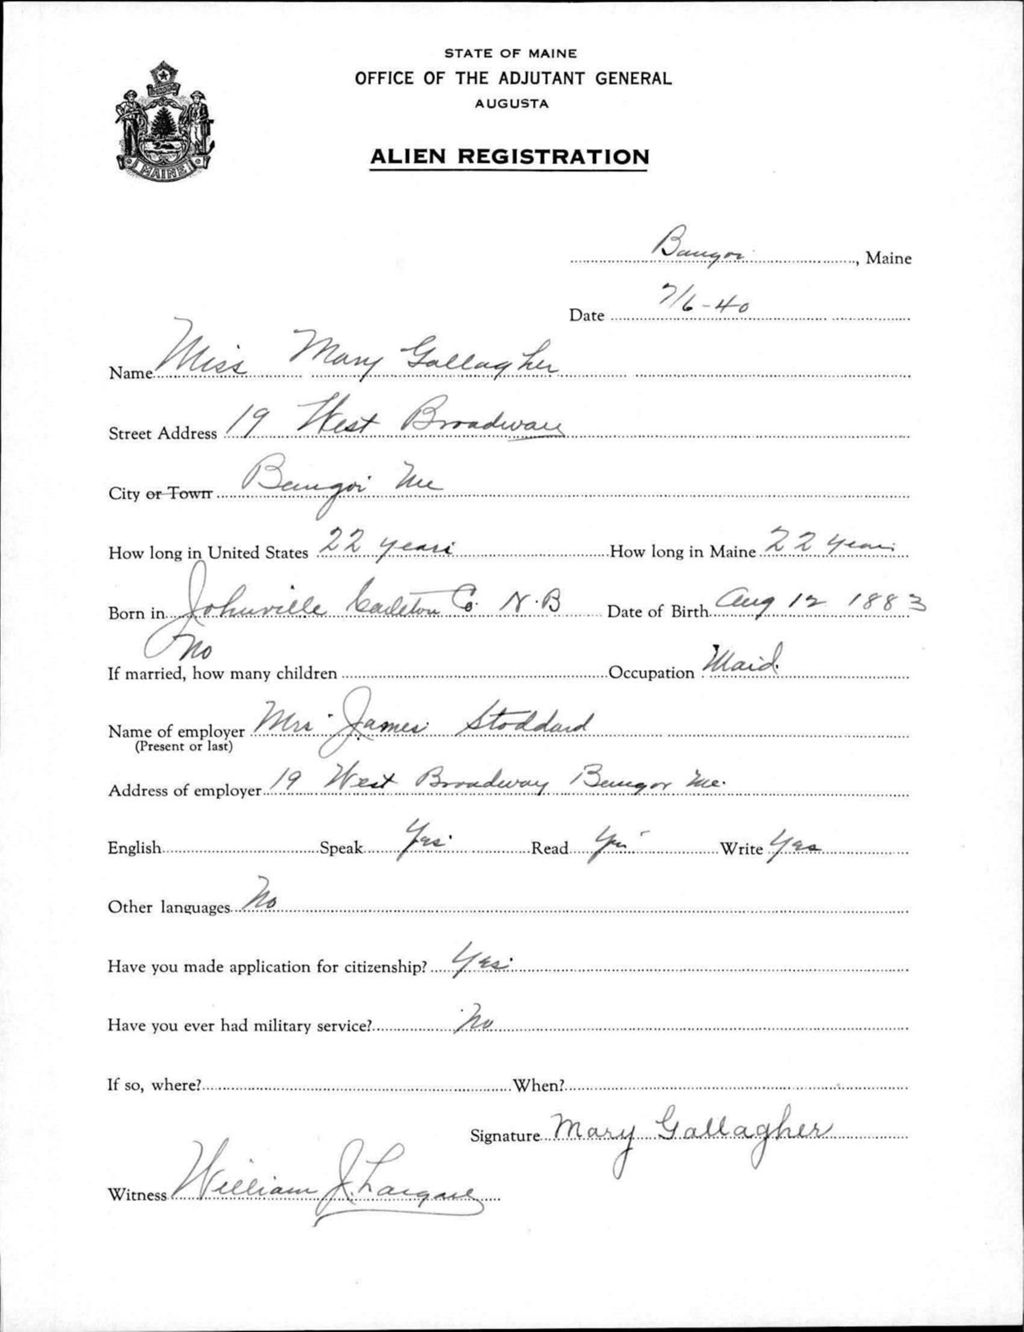 STATE OF MAINE
OFFICE OF THE ADJUTANT GENERAL
AUGUSTA
ALIEN REGISTRATION
MAINE
Bangor, Maine
Date 7/6-40
Name Miss Mary Gallagher
Street Address 19 West Broadway
City or Town Bangor Me
How long in United States 22 years How long in Maine 22 years
Born in Johnville Carleton Co. N.B Date of Birth Aug 12 1883
No
If married, how many children Occupation Maid
Name of employer Mrs James Stoddard
(Present or last)
Address of employer 19 West Broadway Bangor Me.
English Speak Yes Read Yes Write Yes
Other languages No
Have you made application for citizenship? Yes
Have you ever had military service? No
If so, where? When?
Signature Mary Gallagher
Witness William J.